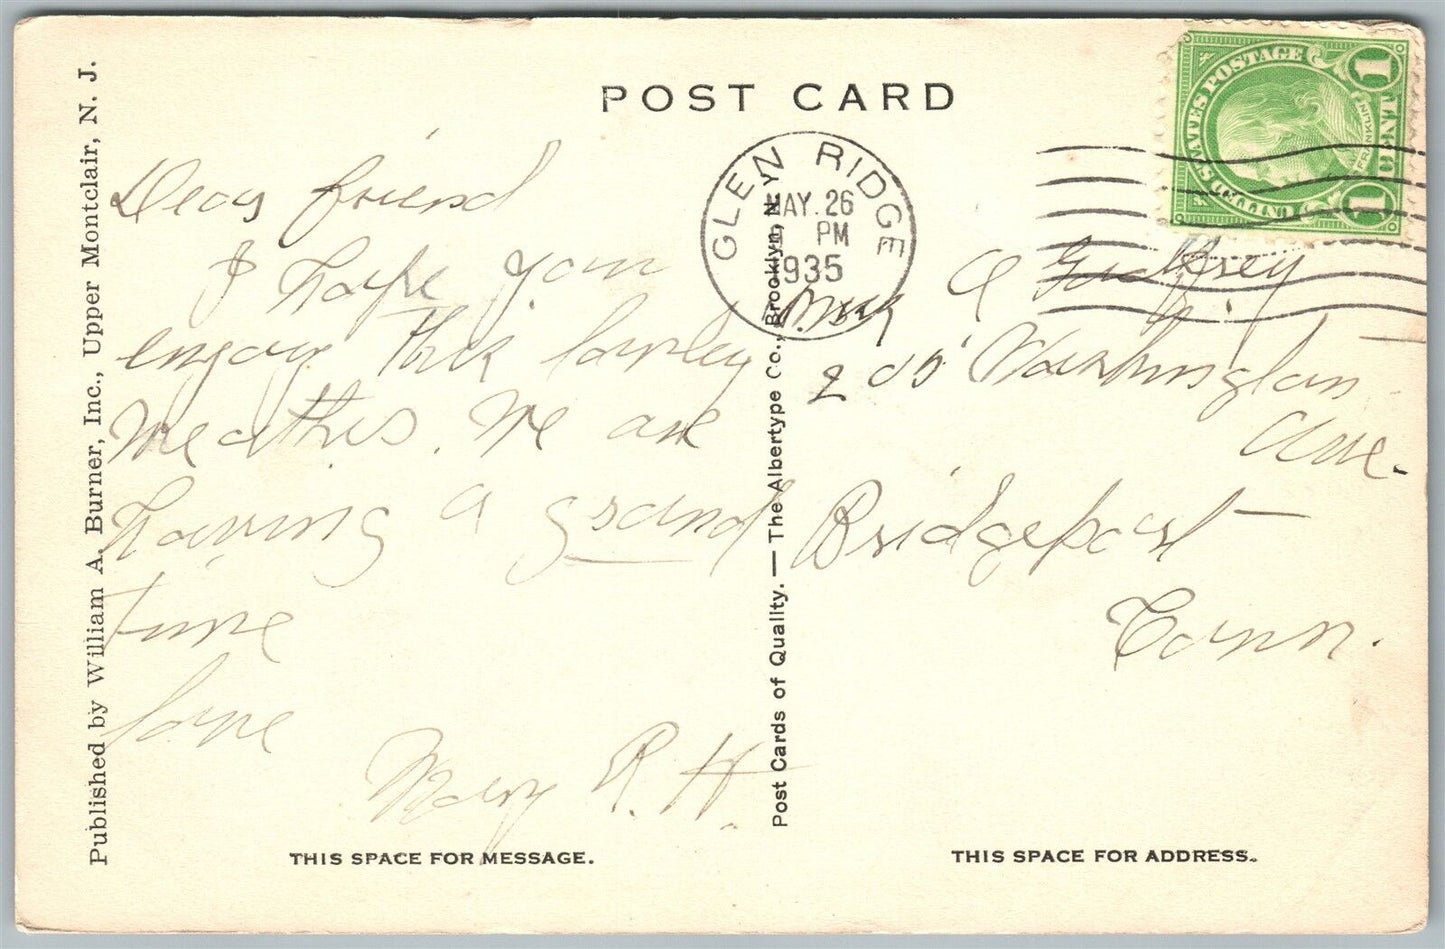 POST CARD
Published by William A. Burner, Inc., Upper Montclair, N. J.
Dear friend
I hope you
enjoy this lovley
weather. We are
having a grand
time
love
Mary R. H.
THIS SPACE FOR MESSAGE.
Post Cards of Quality. — The Albertype Co., Brooklyn, N. Y.
GLEN RIDGE
MAY. 26
PM
1935
UNITED STATES POSTAGE
1
FRANKLIN
ONE CENT
1
A Godfrey
205 Washington
Ave.
Bridgeport
Conn.
THIS SPACE FOR ADDRESS.